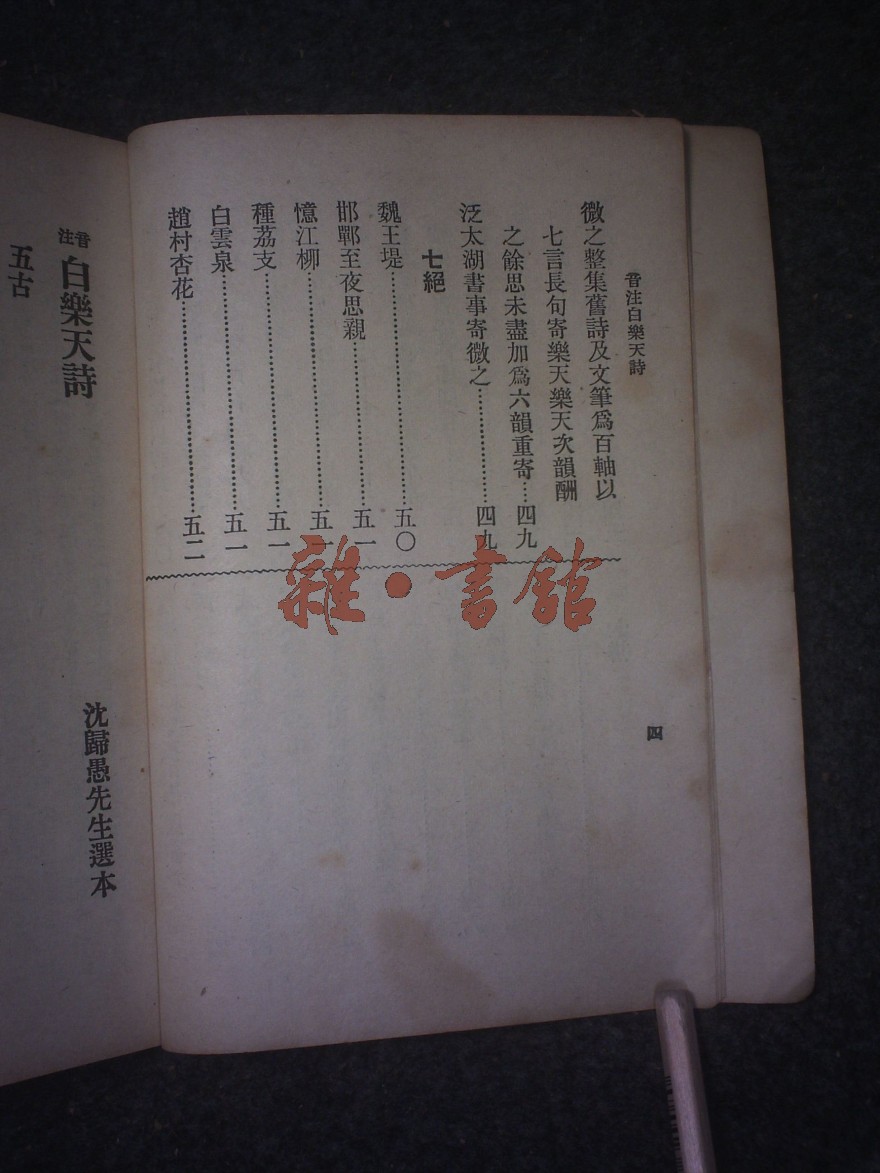 音注白樂天詩
微之整集舊詩及文筆爲百軸以
七言長句寄樂天樂天次韻酬
之餘思未盡加爲六韻重寄…四九
泛太湖書事寄微之………………四九
七絕
魏王堤……………………………五〇
邯鄲至夜思親……………………五一
憶江柳……………………………五一
種荔支……………………………五一
白雲泉……………………………五一
趙村杏花…………………………五二
四
雜·書館
音注 白樂天詩
沈歸愚先生選本
五古